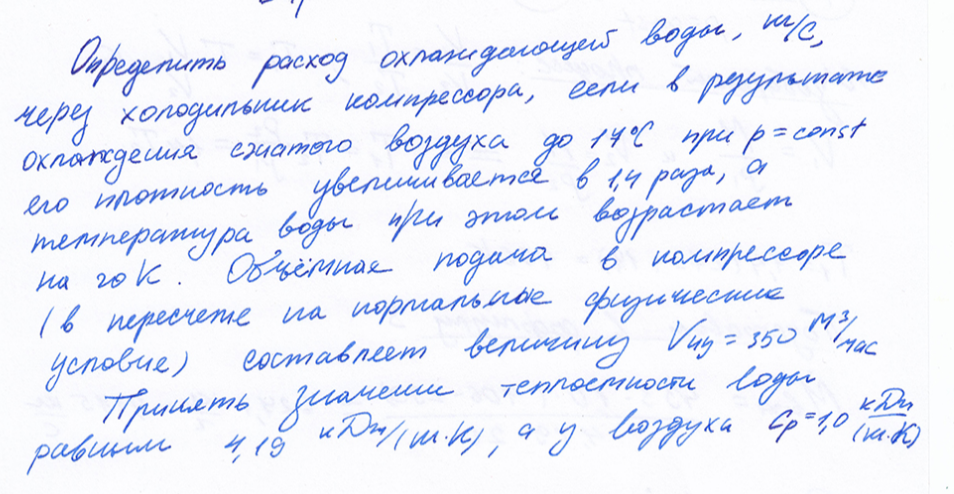 Определить расход охлаждающей воды, кг/с,
через холодильник компрессора, если в результате
охлаждения сжатого воздуха до 17°С при p=const
его плотность увеличивается в 1,4 раза, а
температура воды при этом возрастает
на 20 К. Объёмная подача в компрессоре
(в пересчете на нормальные физические
условие) составляет величину Vну = 350 м³/час
Принять значении теплоемкости воды
равным 4,19 кДж/(кг·К), а у воздуха Cp=1,0 кДж/(кг·К)